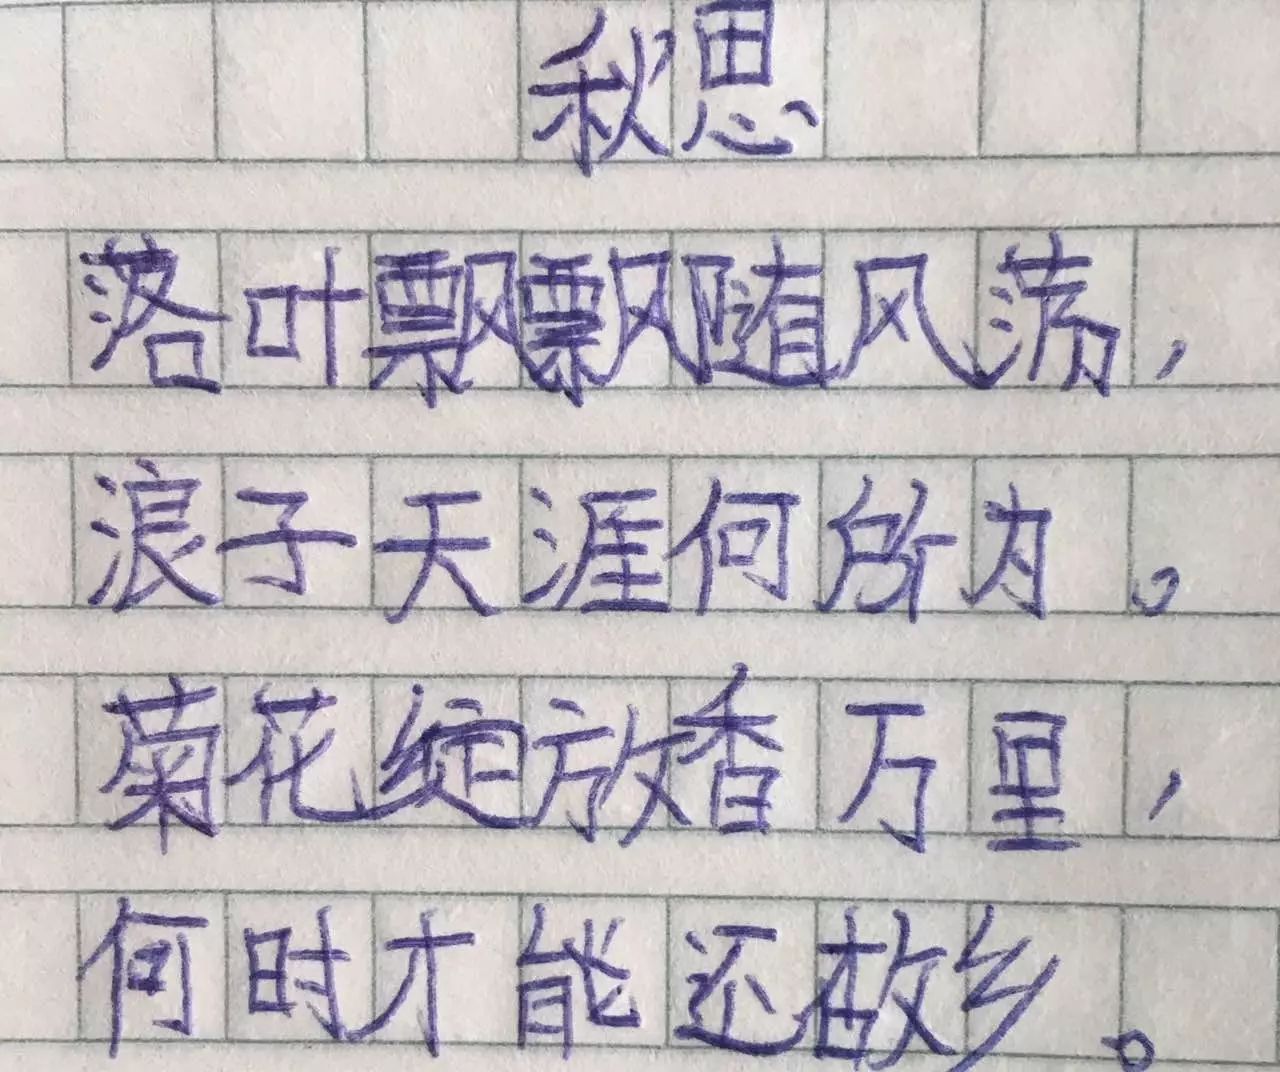 秋思
落叶飘飘随风荡，
浪子天涯何所为。
菊花绽放香万里，
何时才能还故乡。